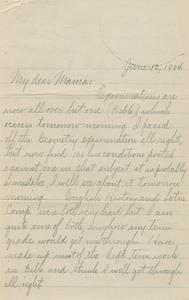 June 12, 1904.
My dear Mama:
Examinations are
now all over but one (Bible) which
occurs tomorrow morning. I passed
off the Geometry examination all right,
but now find my condition posted
against me in that subject; it is probably
a mistake, I will see about it tomorrow
morning. English History and Latin
Comp. were both very hard but I am
quite sure of both, anyhow my term
grade would get me through. I have
made up most of the dept. term work
in Bible and think I will get through
all right.